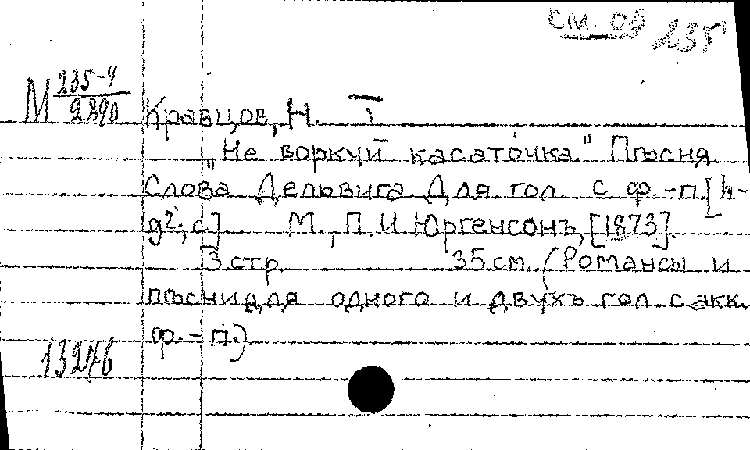 см. 09 235
М 235-4/2890 Кравцов, Н. I
"Не воркуй касаточка" Пѣсня
Слова Дельвига Для гол. с ф.-п. [h-
g²; c] М., П. И. Юргенсонъ, [1873].
3 стр. 35 см. (Романсы и
пѣсни для одного и двухъ гол. с акк.
ф.-п.)